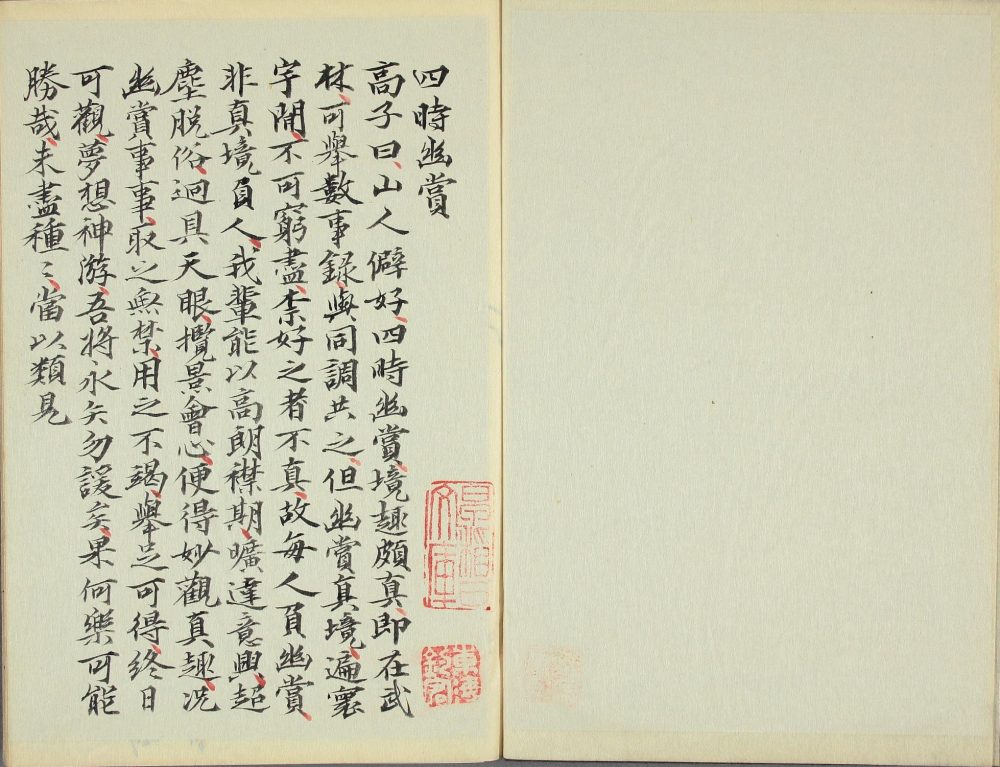 四時幽賞
高子曰、山人僻好、四時幽賞、境趣頗真、即在武
林、可舉數事、録與同調共之、但幽賞真境、遍寰
宇間、不可窮盡、柰好之者不真、故每人負幽賞、
非真境負人、我輩能以高朗襟期、曠達意興、超
塵脫俗、迥具天眼、攬景會心、便得妙觀真趣、況
幽賞事事、取之無禁、用之不竭、舉足可得、終日
可觀、夢想神游、吾將永矢勿諼矣、果何樂可能
勝哉、未盡種〻、當以類見